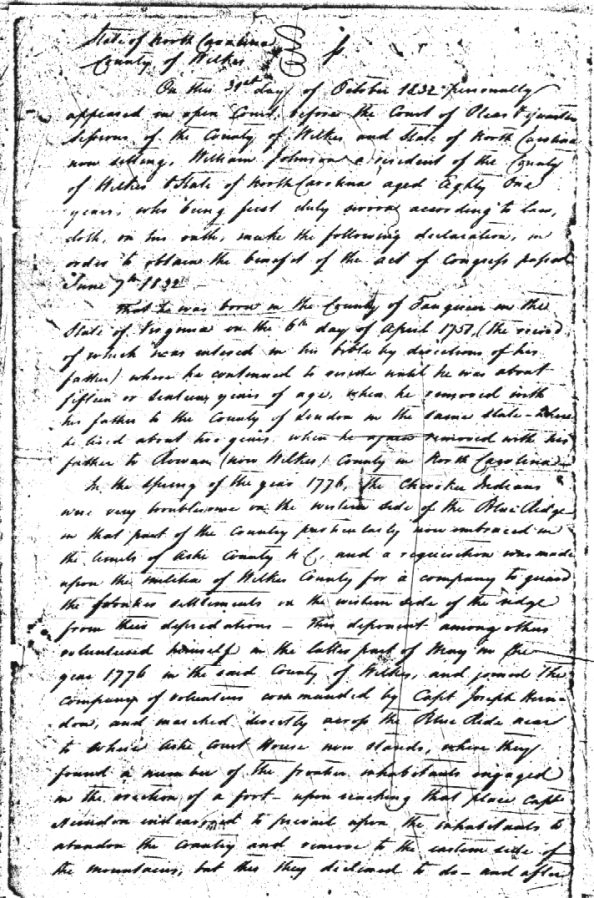 State of North Carolina
County of Wilkes
On this 31st day of October 1832 personally
appeared in open Court, before the Court of Pleas & quarter
sessions of the County of Wilkes and State of North Carolina
now sitting, William Johnson a resident of the County
of Wilkes & State of North Carolina, aged Eighty One
years, who being first duly sworn according to law,
doth, on his oath, make the following declaration, in
order to obtain the benefit of the act of Congress passed
June 7th 1832
That he was born in the County of Fauquier in the
State of Virginia on the 6th day of April 1751, (the record
of which was entered in his bible by directions of his
father) where he continued to reside until he was about
fifteen or sixteen years of age, when he removed with
his father to the County of Loudon in the same state - where
he lived about two years, when he again removed with his
father to Rowan (now Wilkes) County in North Carolina
In the spring of the year 1776, the Cherokee Indians
were very troublesome on the western side of the Blue Ridge
in that part of the Country particularly now embraced in
the limits of Ashe County N C, and a requisition was made
upon the militia of Wilkes County for a company to guard
the frontier settlements on the western side of the ridge
from their depredations - This deponent among others
volunteered himself in the latter part of May in the
year 1776 in the said County of Wilkes, and joined the
company of volunteers commanded by Capt Joseph Hern-
don, and marched directly across the Blue Ride near
to where Ashe Court House now stands, where they
found a number of the frontier inhabitants engaged
in the erection of a fort - upon reaching that place Capt
Herndon endeavored to prevail upon the inhabitants to
abandon the Country and remove to the eastern side of
the mountains; but this they declined to do - and after